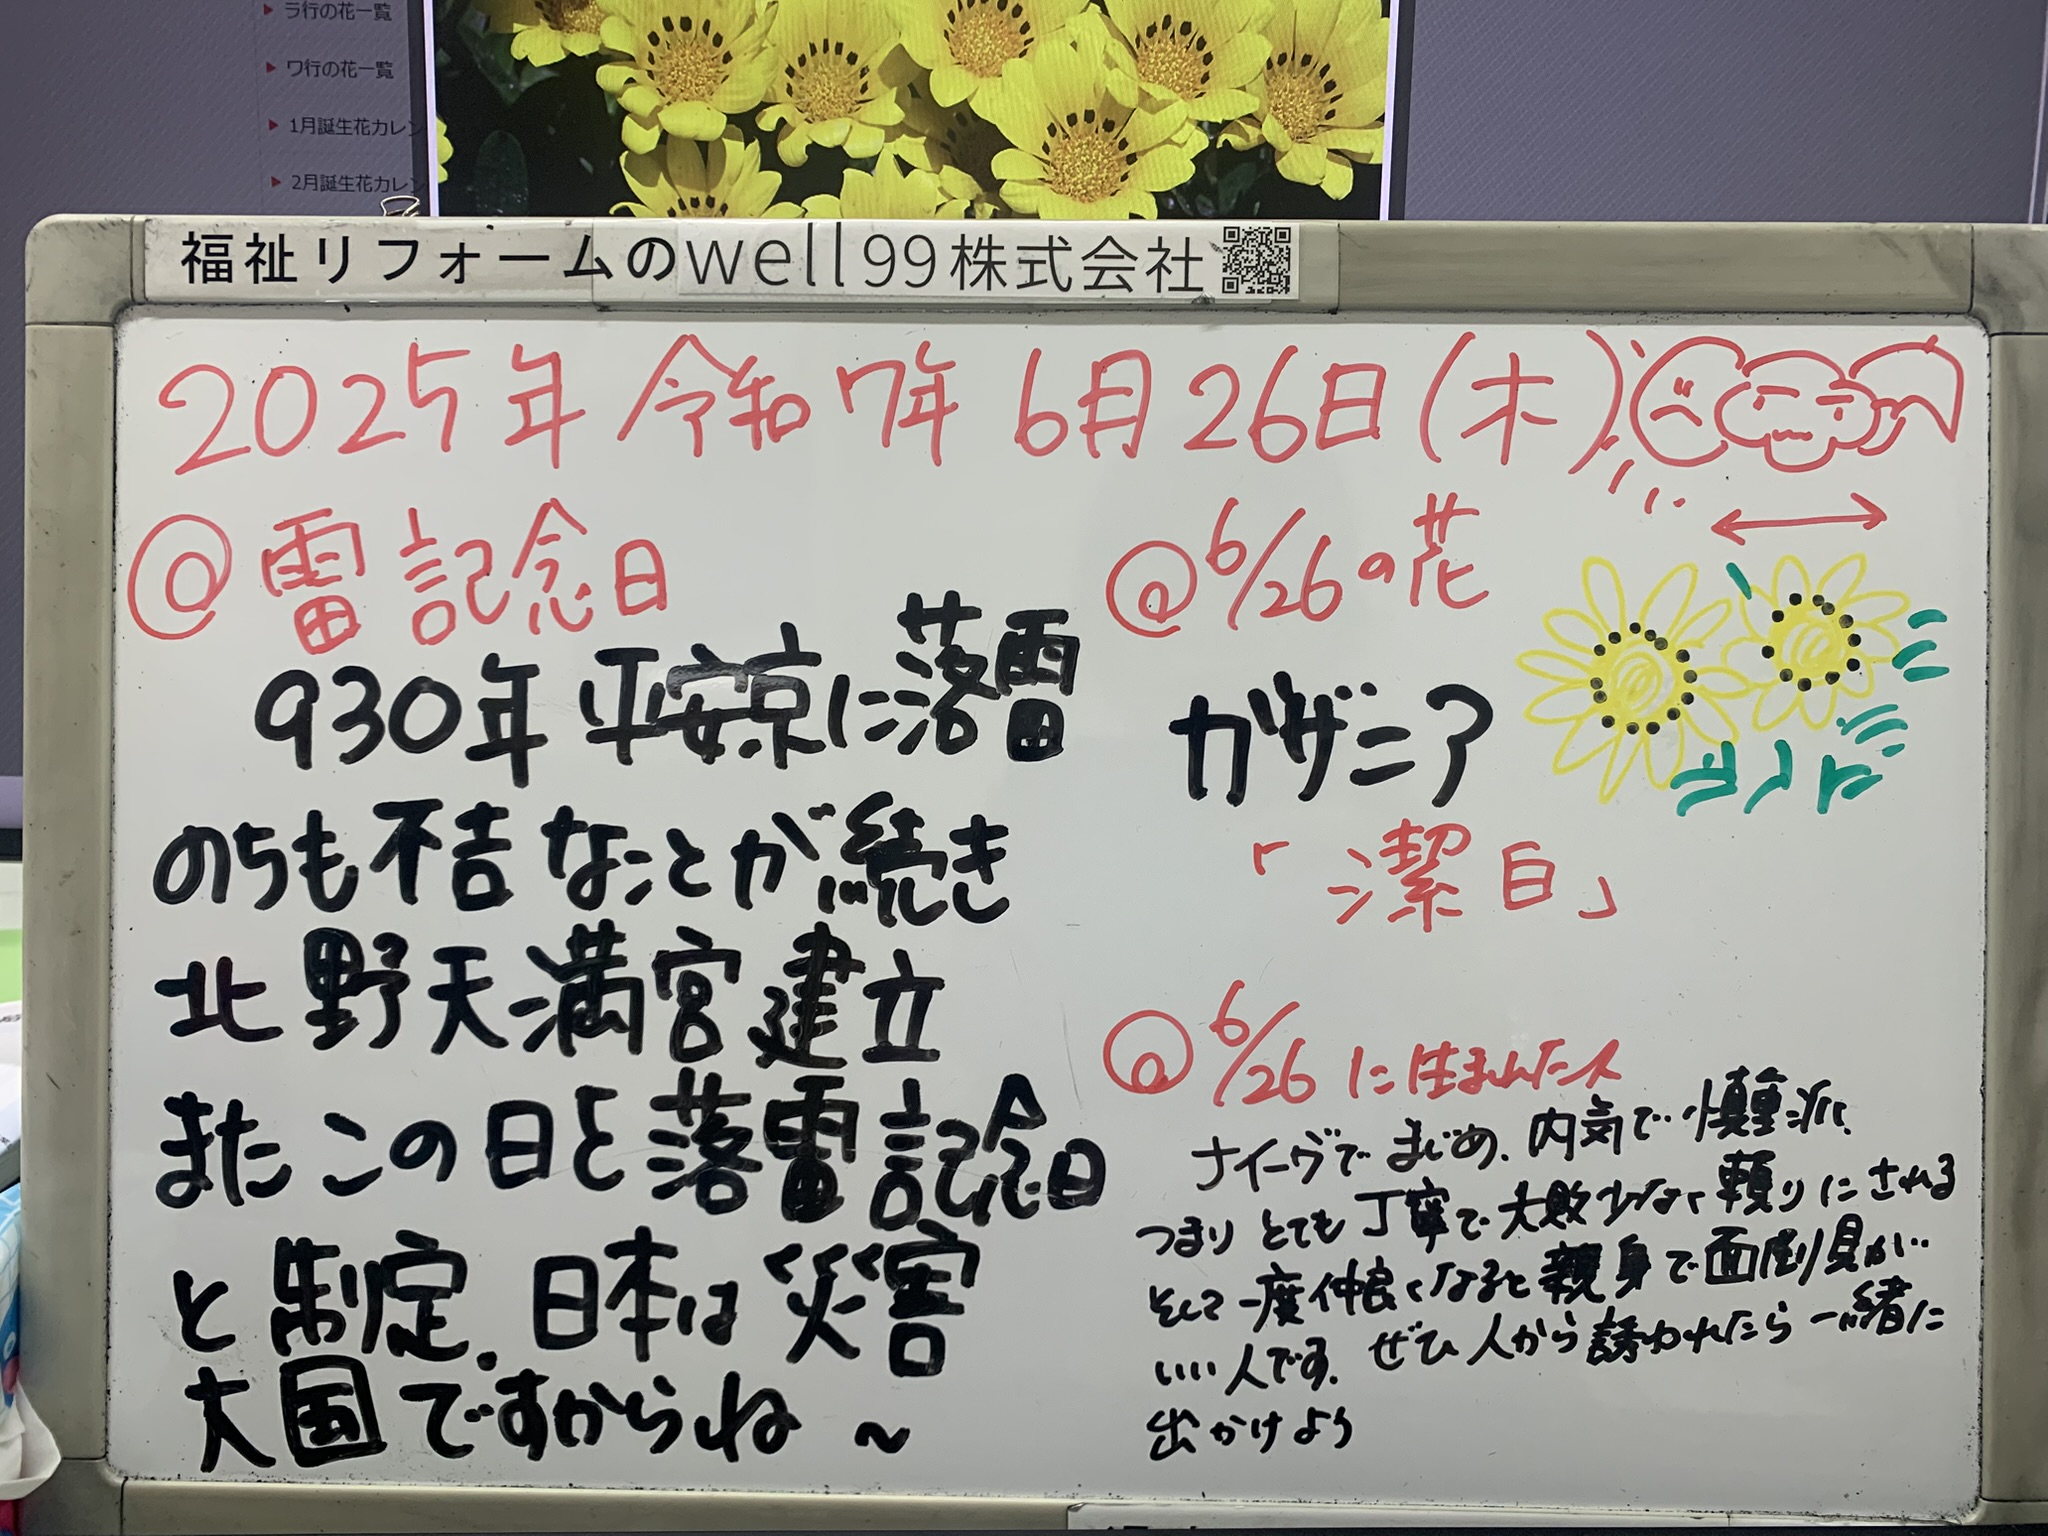 ラ行の花一覧
ワ行の花一覧
1月誕生花カレン
2月誕生花カレン
福祉リフォームのwell99株式会社
2025年 令和7年 6月26日(木)
@雷記念日
930年 平安京に落雷
のちも不吉なことが続き
北野天満宮建立
またこの日を落雷記念日
と制定.日本は災害
大国ですからね～
@6/26の花
ガザニア
「潔白」
@6/26に生まれた人
ナイーヴでまじめ.内気で慎重派.
つまりとても丁寧で大敗少なく頼りにされる
そして一度仲良くなると親身で面倒見が
いい人です.ぜひ人から誘われたら一緒に
出かけよう